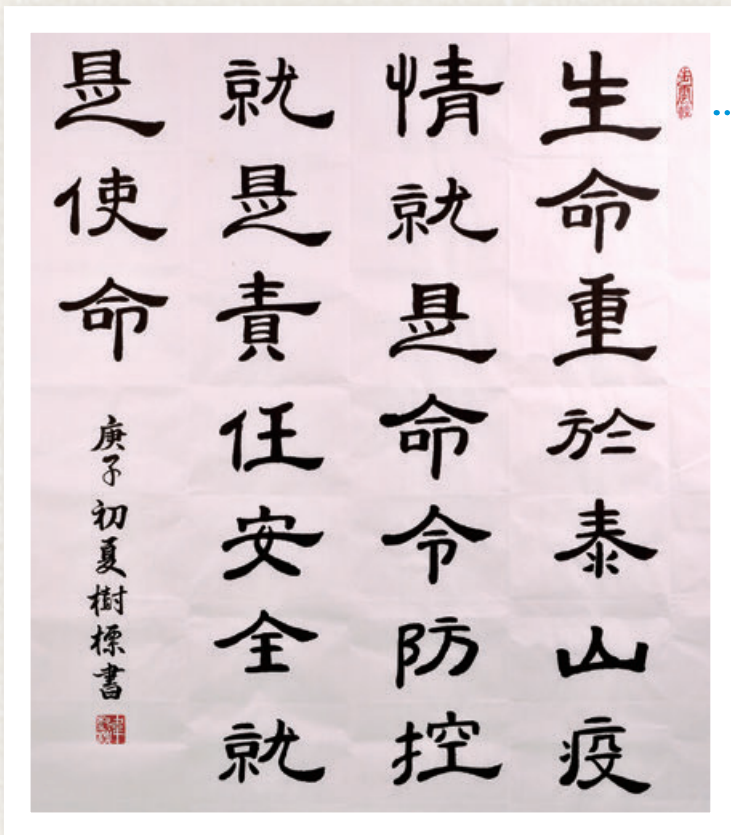 生命重於泰山疫
情就是命令防控
就是責任安全就
是使命
庚子初夏樹標書